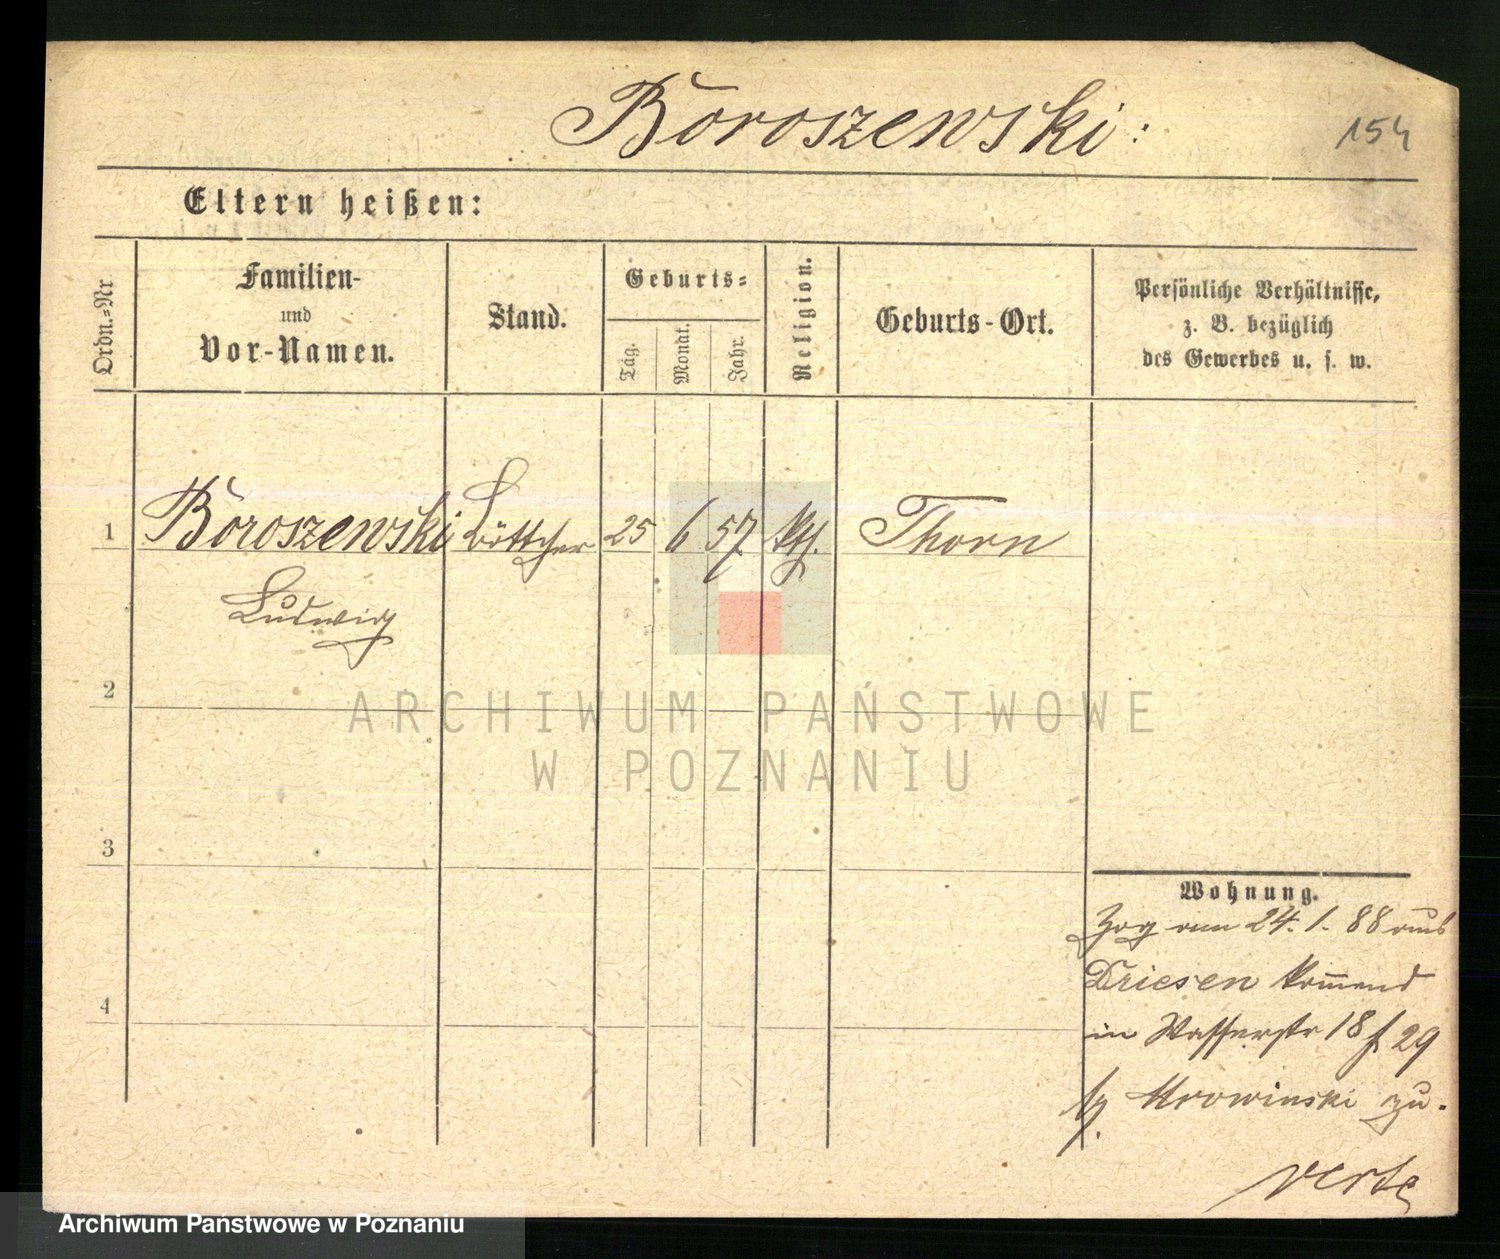 Boroszewski:
154
Eltern heißen:
Ordn.=Nr
Familien-
und
Vor-Namen.
Stand.
Geburts=
Tag.
Monat.
Jahr.
Religion.
Geburts-Ort.
Persönliche Verhältnisse,
z. B. bezüglich
des Gewerbes u. s. w.
1 Boroszewski Böttcher 25 6 57. kth. Thorn
Ludwig
2
ARCHIWUM PAŃSTWOWE
W POZNANIU
3
4
Wohnung.
Zog am 24. 1. 88 aus
Driesen kommend
in Wasserstr 18 f 29
b/. Mrowinski zu.
verte
Archiwum Państwowe w Poznaniu